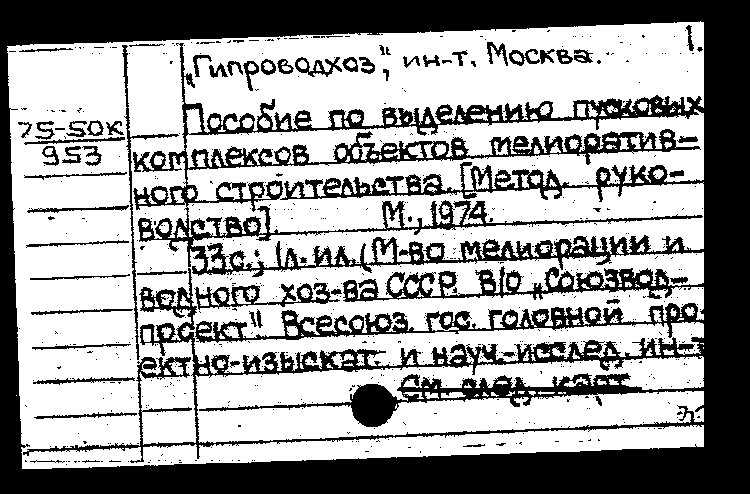 1.
„Гипроводхоз", ин-т. Москва.
75-50к
953
Пособие по выделению пусковых
комплексов объектов мелиоратив-
ного строительства. [Метод. руко-
водство]. М., 1974.
33с.; 1л. ил. (М-во мелиорации и
водного хоз-ва СССР. В/О „Союзвод-
проект". Всесоюз. гос. головной про-
ектно-изыскат. и науч.-исслед. ин-т
См. след. карт.